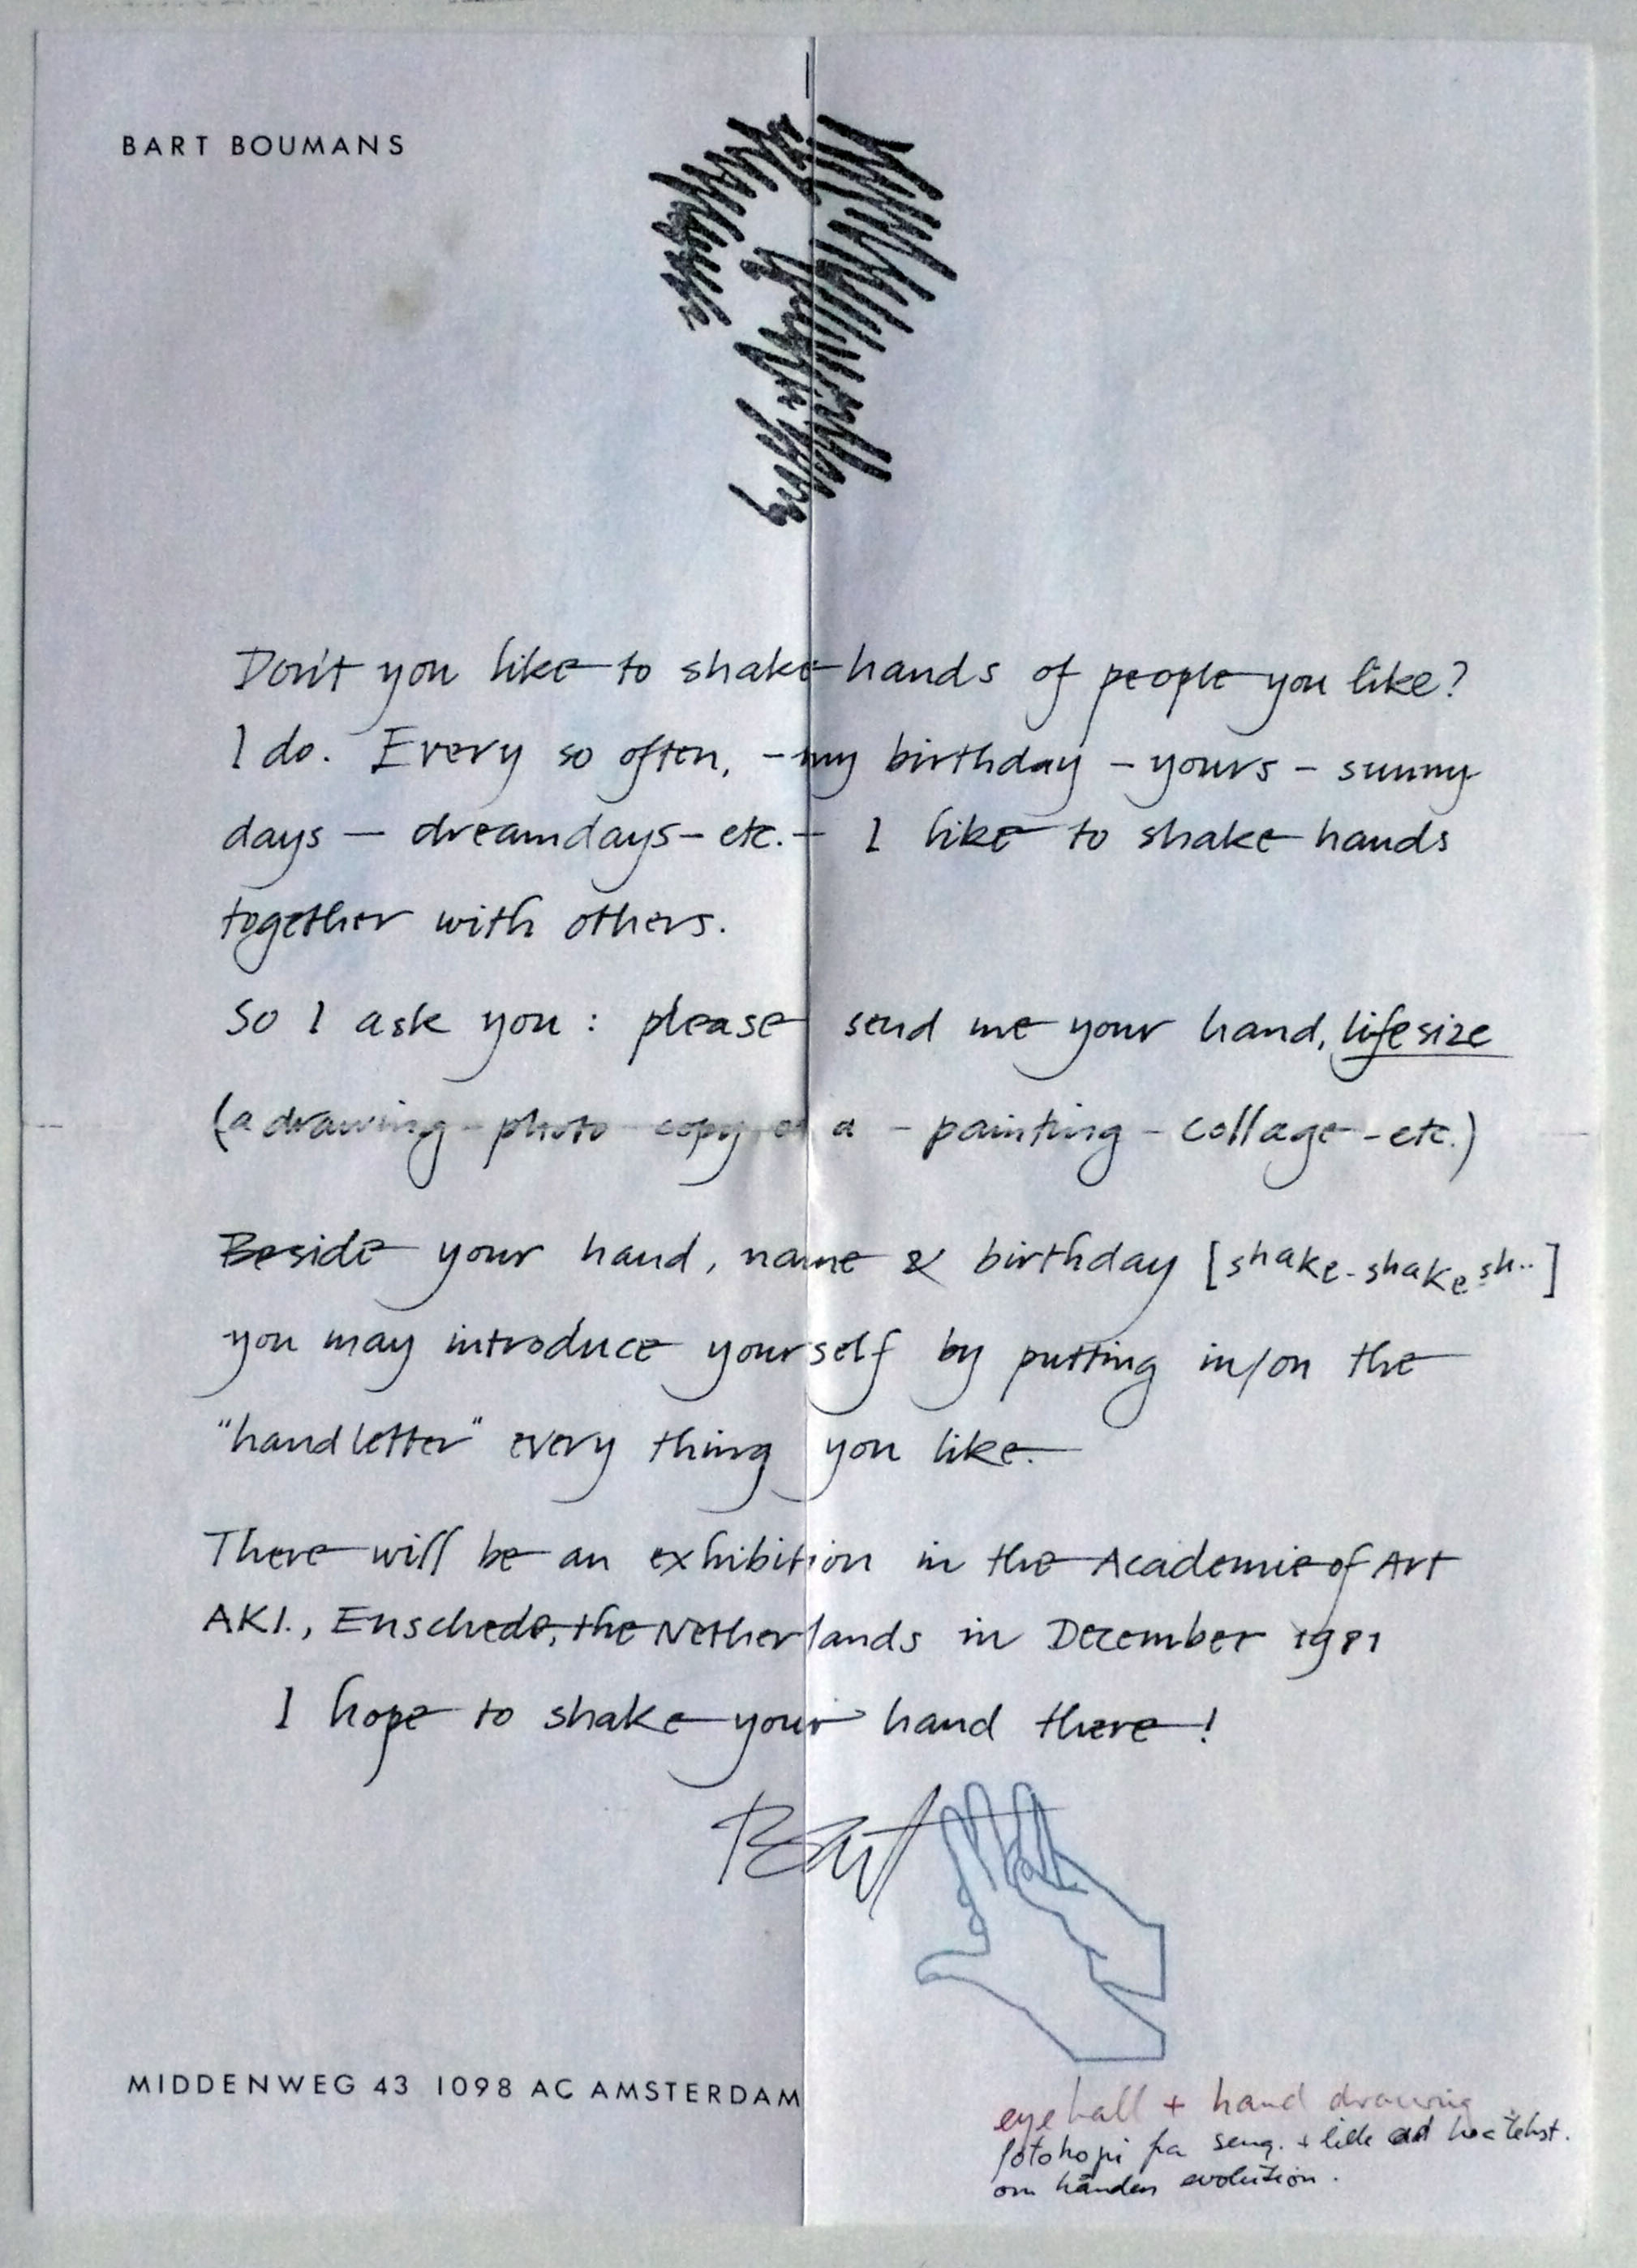 BART BOUMANS
Don't you like to shake hands of people you like?
I do. Every so often, - my birthday - yours - sunny
days - dreamdays - etc. - I like to shake hands
together with others.
So I ask you : please send me your hand, lifesize
(a drawing - photo copy of a - painting - collage - etc.)
Beside your hand, name & birthday [shake-shake sh..]
you may introduce yourself by putting in/on the
"handletter" every thing you like.
There will be an exhibition in the Academie of Art
AKI., Enschede, the Netherlands in December 1981
I hope to shake your hand there!
Bart
MIDDENWEG 43 1098 AC AMSTERDAM
eyeball + hand drawing
fotokopi fra + lille ad hoc tekst.
om hånden evolution.